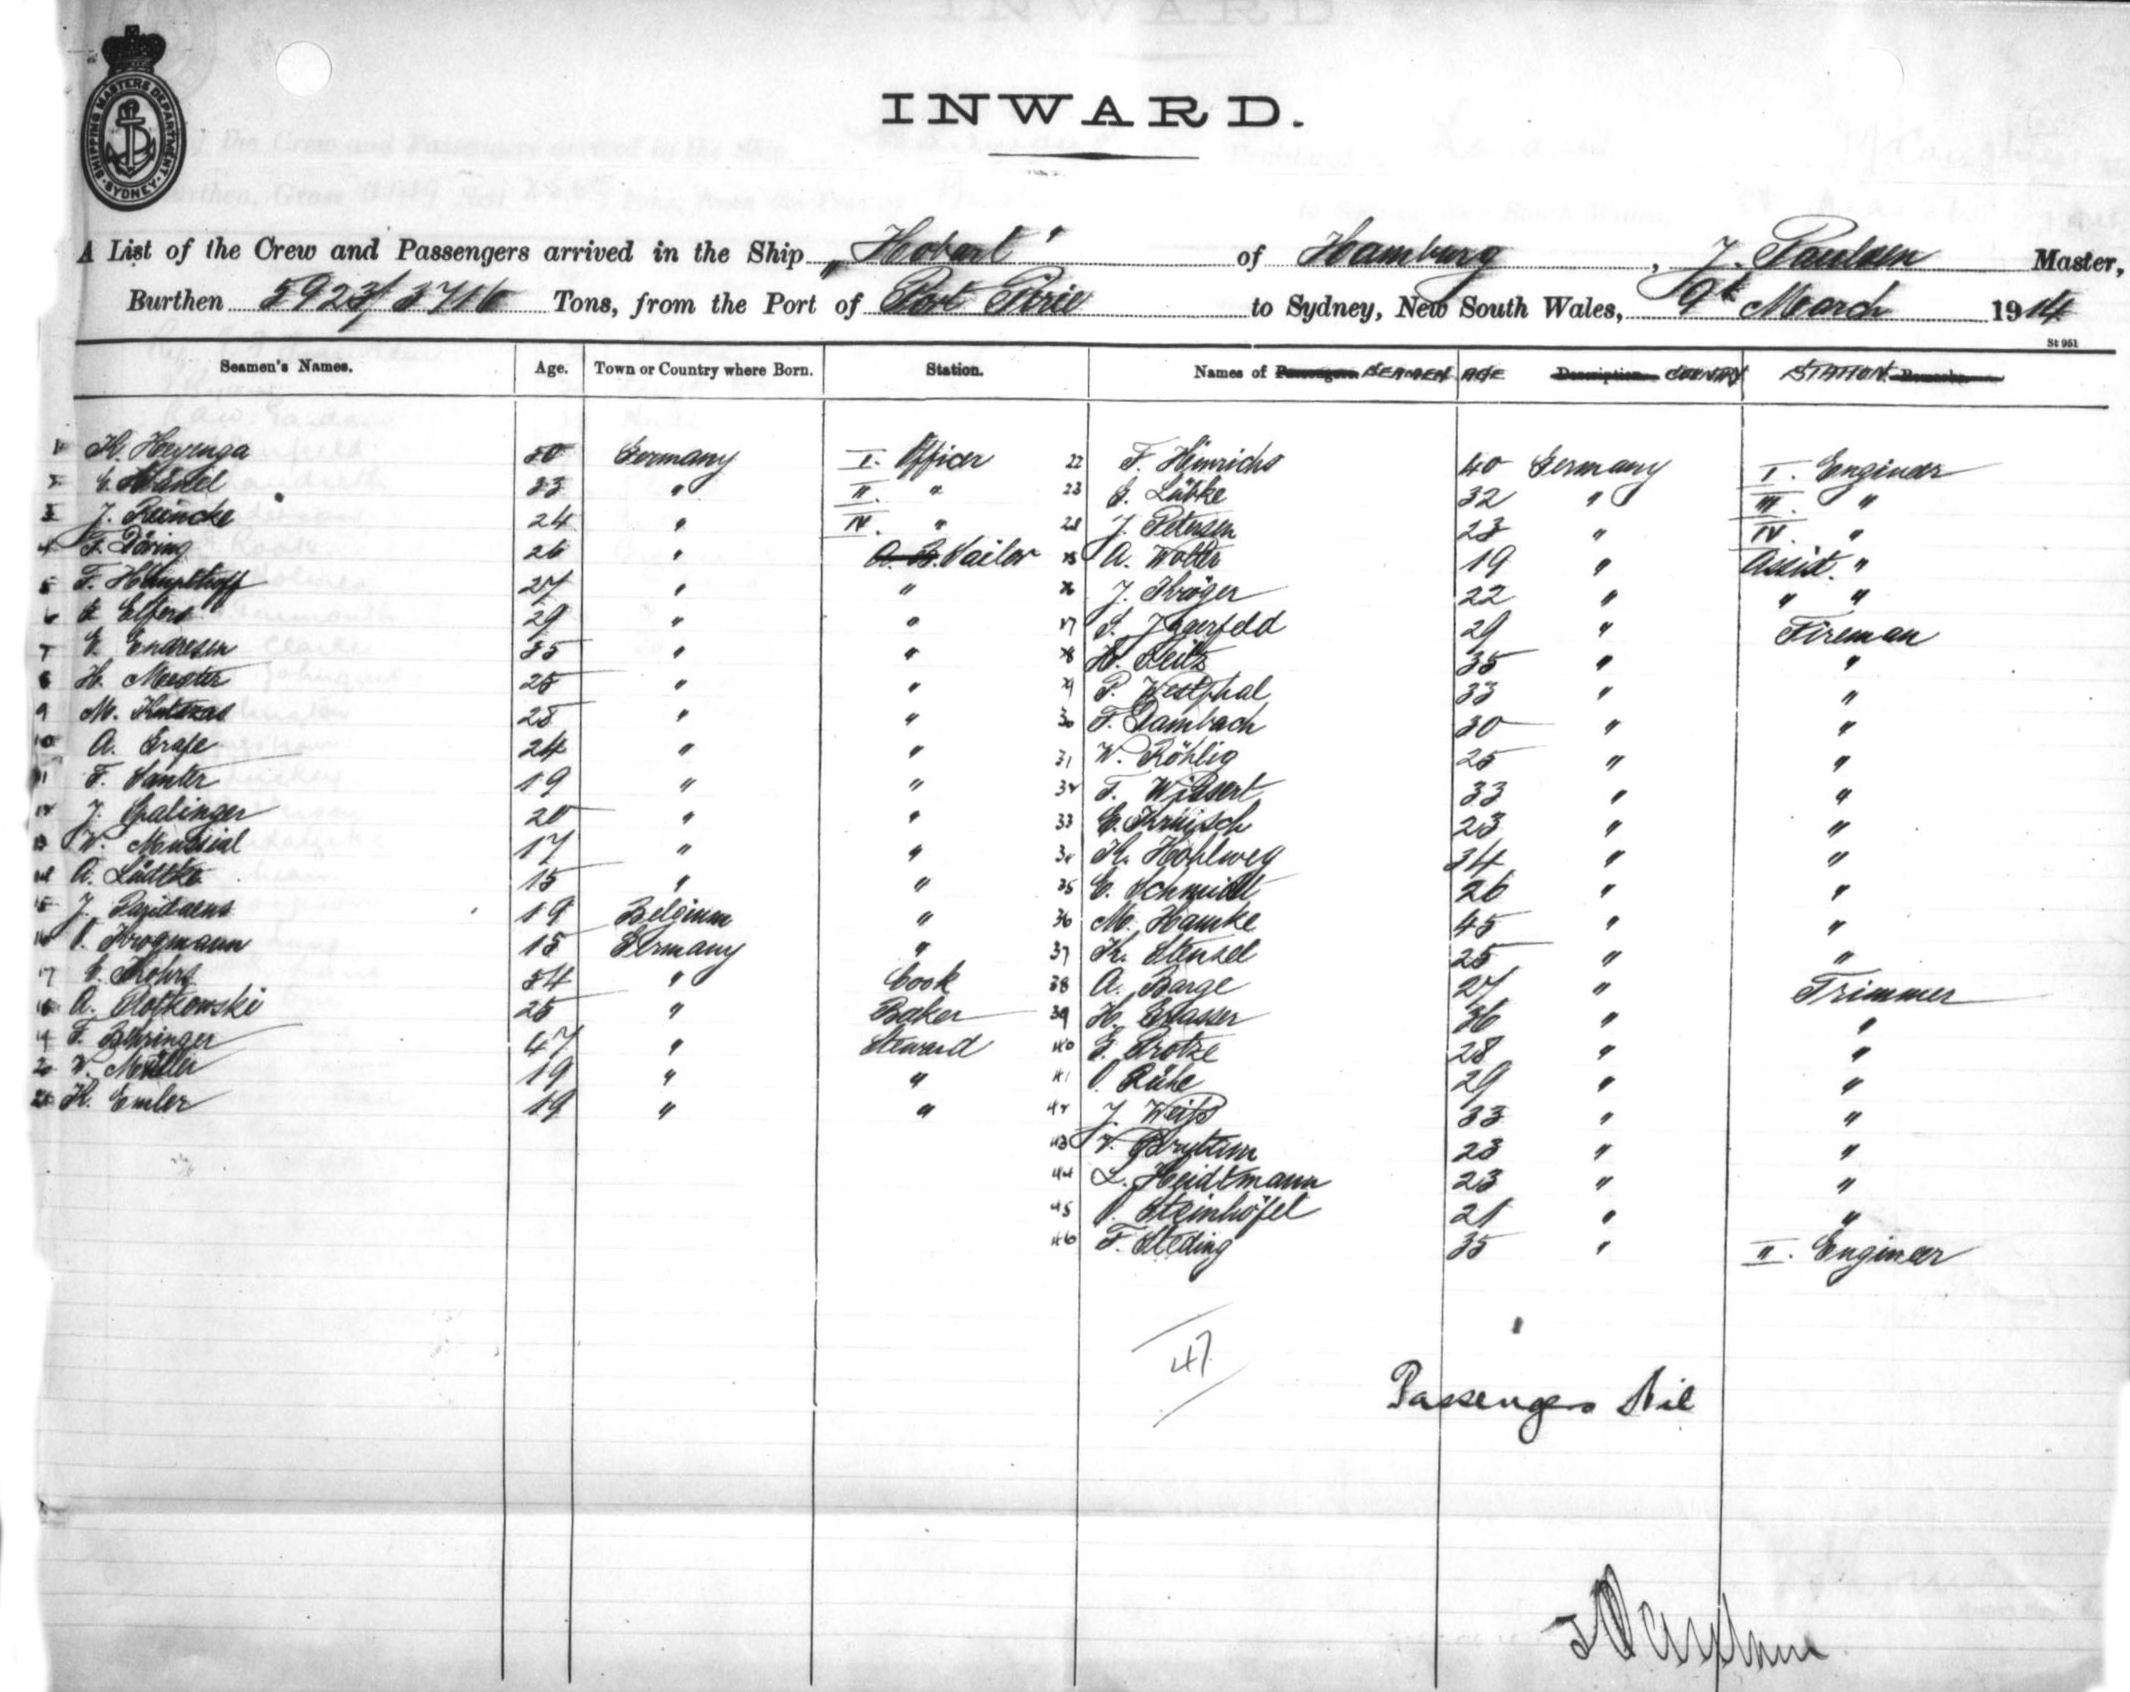 INWARD.
SHIPPING MASTERS DEPARTMENT SYDNEY
A List of the Crew and Passengers arrived in the Ship „Hobart" of Hamburg, J. Paulsen Master,
Burthen 5923/3716 Tons, from the Port of Port Pirie to Sydney, New South Wales, 9th March 1914
St 951
Seamen's Names. Age. Town or Country where Born. Station. Names of Passengers SEAMEN AGE Description COUNTRY STATION Remarks
1 H. Heyenga 50 Germany I. Officer
2 33 " II. "
3 J. Reincke 24 " IV. "
4 F. Döring 26 " A. B. Sailor
5 F. 27 " "
6 Elfers 29 " "
7 E. Endresen 35 " "
8 H. Meester 25 " "
9 M. 28 " "
10 A. Grafe 24 " "
11 F. Santer 19 " "
12 J. Galinger 20 " "
13 W. Musial 17 " "
14 A. Lüdtke 15 " "
15 J. Paridaens 19 Belgium "
16 Krogmann 15 Germany "
17 Kohrs 54 " Cook
18 A. Rotkowski 25 " Baker
19 F. Behringer 47 " Steward
20 W. Müller 19 " "
21 K. Emler 19 " "
22 F. Hinrichs 40 Germany I. Engineer
23 G. Lübke 32 " III. "
24 J. Petersen 23 " IV. "
25 A. Wolter 19 " Assist. "
26 J. Kröger 22 " " "
27 Jägerfeld 29 " Fireman
28 H. Seitz 35 " "
29 P. Westphal 33 " "
30 F. Dambach 30 " "
31 W. Röhlig 25 " "
32 F. Wissert 33 " "
33 E. 23 " "
34 K. Hohlweg 34 " "
35 E. Schmidt 26 " "
36 M. Hamke 45 " "
37 K. Stensel 25 " "
38 A. Barge 27 " Trimmer
39 H. Glasser 36 " "
40 G. Protze 28 " "
41 Rühe 29 " "
42 J. Weiß 33 " "
43 23 " "
44 L. Heidtmann 23 " "
45 Steinhöfel 21 " "
46 F. Steding 35 " II. Engineer
47
Passengers Nil
J Paulsen